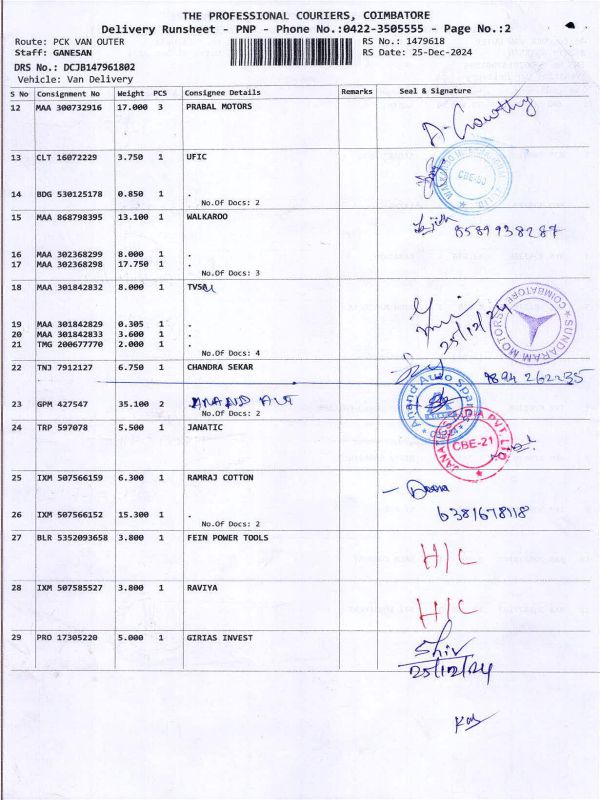 THE PROFESSIONAL COURIERS, COIMBATORE
Delivery Runsheet - PNP - Phone No.:0422-3505555 - Page No.:2
Route: PCK VAN OUTER RS No.: 1479618
Staff: GANESAN RS Date: 25-Dec-2024
DRS No.: DCJB147961802
Vehicle: Van Delivery
S No Consignment No Weight PCS Consignee Details Remarks Seal & Signature
12 MAA 300732916 17.000 3 PRABAL MOTORS
13 CLT 16072229 3.750 1 UFIC
CBE-50
14 BDG 530125178 0.850 1 .
No.Of Docs: 2
15 MAA 868798395 13.100 1 WALKAROO
8589938287
16 MAA 302368299 8.000 1 .
17 MAA 302368298 17.750 1 .
No.Of Docs: 3
18 MAA 301842832 8.000 1 TVSM
25/12/24
SUNDARAM MOTORS COIMBATORE
19 MAA 301842829 0.305 1 .
20 MAA 301842833 3.600 1 .
21 TMG 200677770 2.000 1 .
No.Of Docs: 4
22 TNJ 7912127 6.750 1 CHANDRA SEKAR
9894 262235
Anand Auto Spares
23 GPM 427547 35.100 2 ANAND AUT
No.Of Docs: 2
24 TRP 597078 5.500 1 JANATIC
CBE-21
25 IXM 507566159 6.300 1 RAMRAJ COTTON
6381678118
26 IXM 507566152 15.300 1 .
No.Of Docs: 2
27 BLR 5352093658 3.800 1 FEIN POWER TOOLS
H/C
28 IXM 507585527 3.800 1 RAVIYA
H/C
29 PRO 17305220 5.000 1 GIRIAS INVEST
Shiv
25/12/24